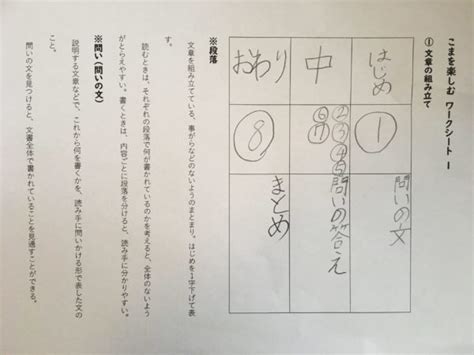 こまを楽しむ ワークシート 1
① 文章の組み立て
はじめ
①
問いの文
中
②③④⑤
⑥⑦
問いの答え
おわり
⑧
まとめ
※段落
文章を組み立てている、事がらなどのないようのまとまり。はじめを1字下げて表
す。
読むときは、それぞれの段落で何が書かれているのかを考えると、全体のないよう
がとらえやすい。書くときは、内容ごとに段落を分けると、読み手に分かりやすい。
※問い（問いの文）
説明する文章などで、これから何を書くかを、読み手に問いかける形で表した文の
こと。
問いの文を見つけると、文書全体で書かれていることを見通すことができる。